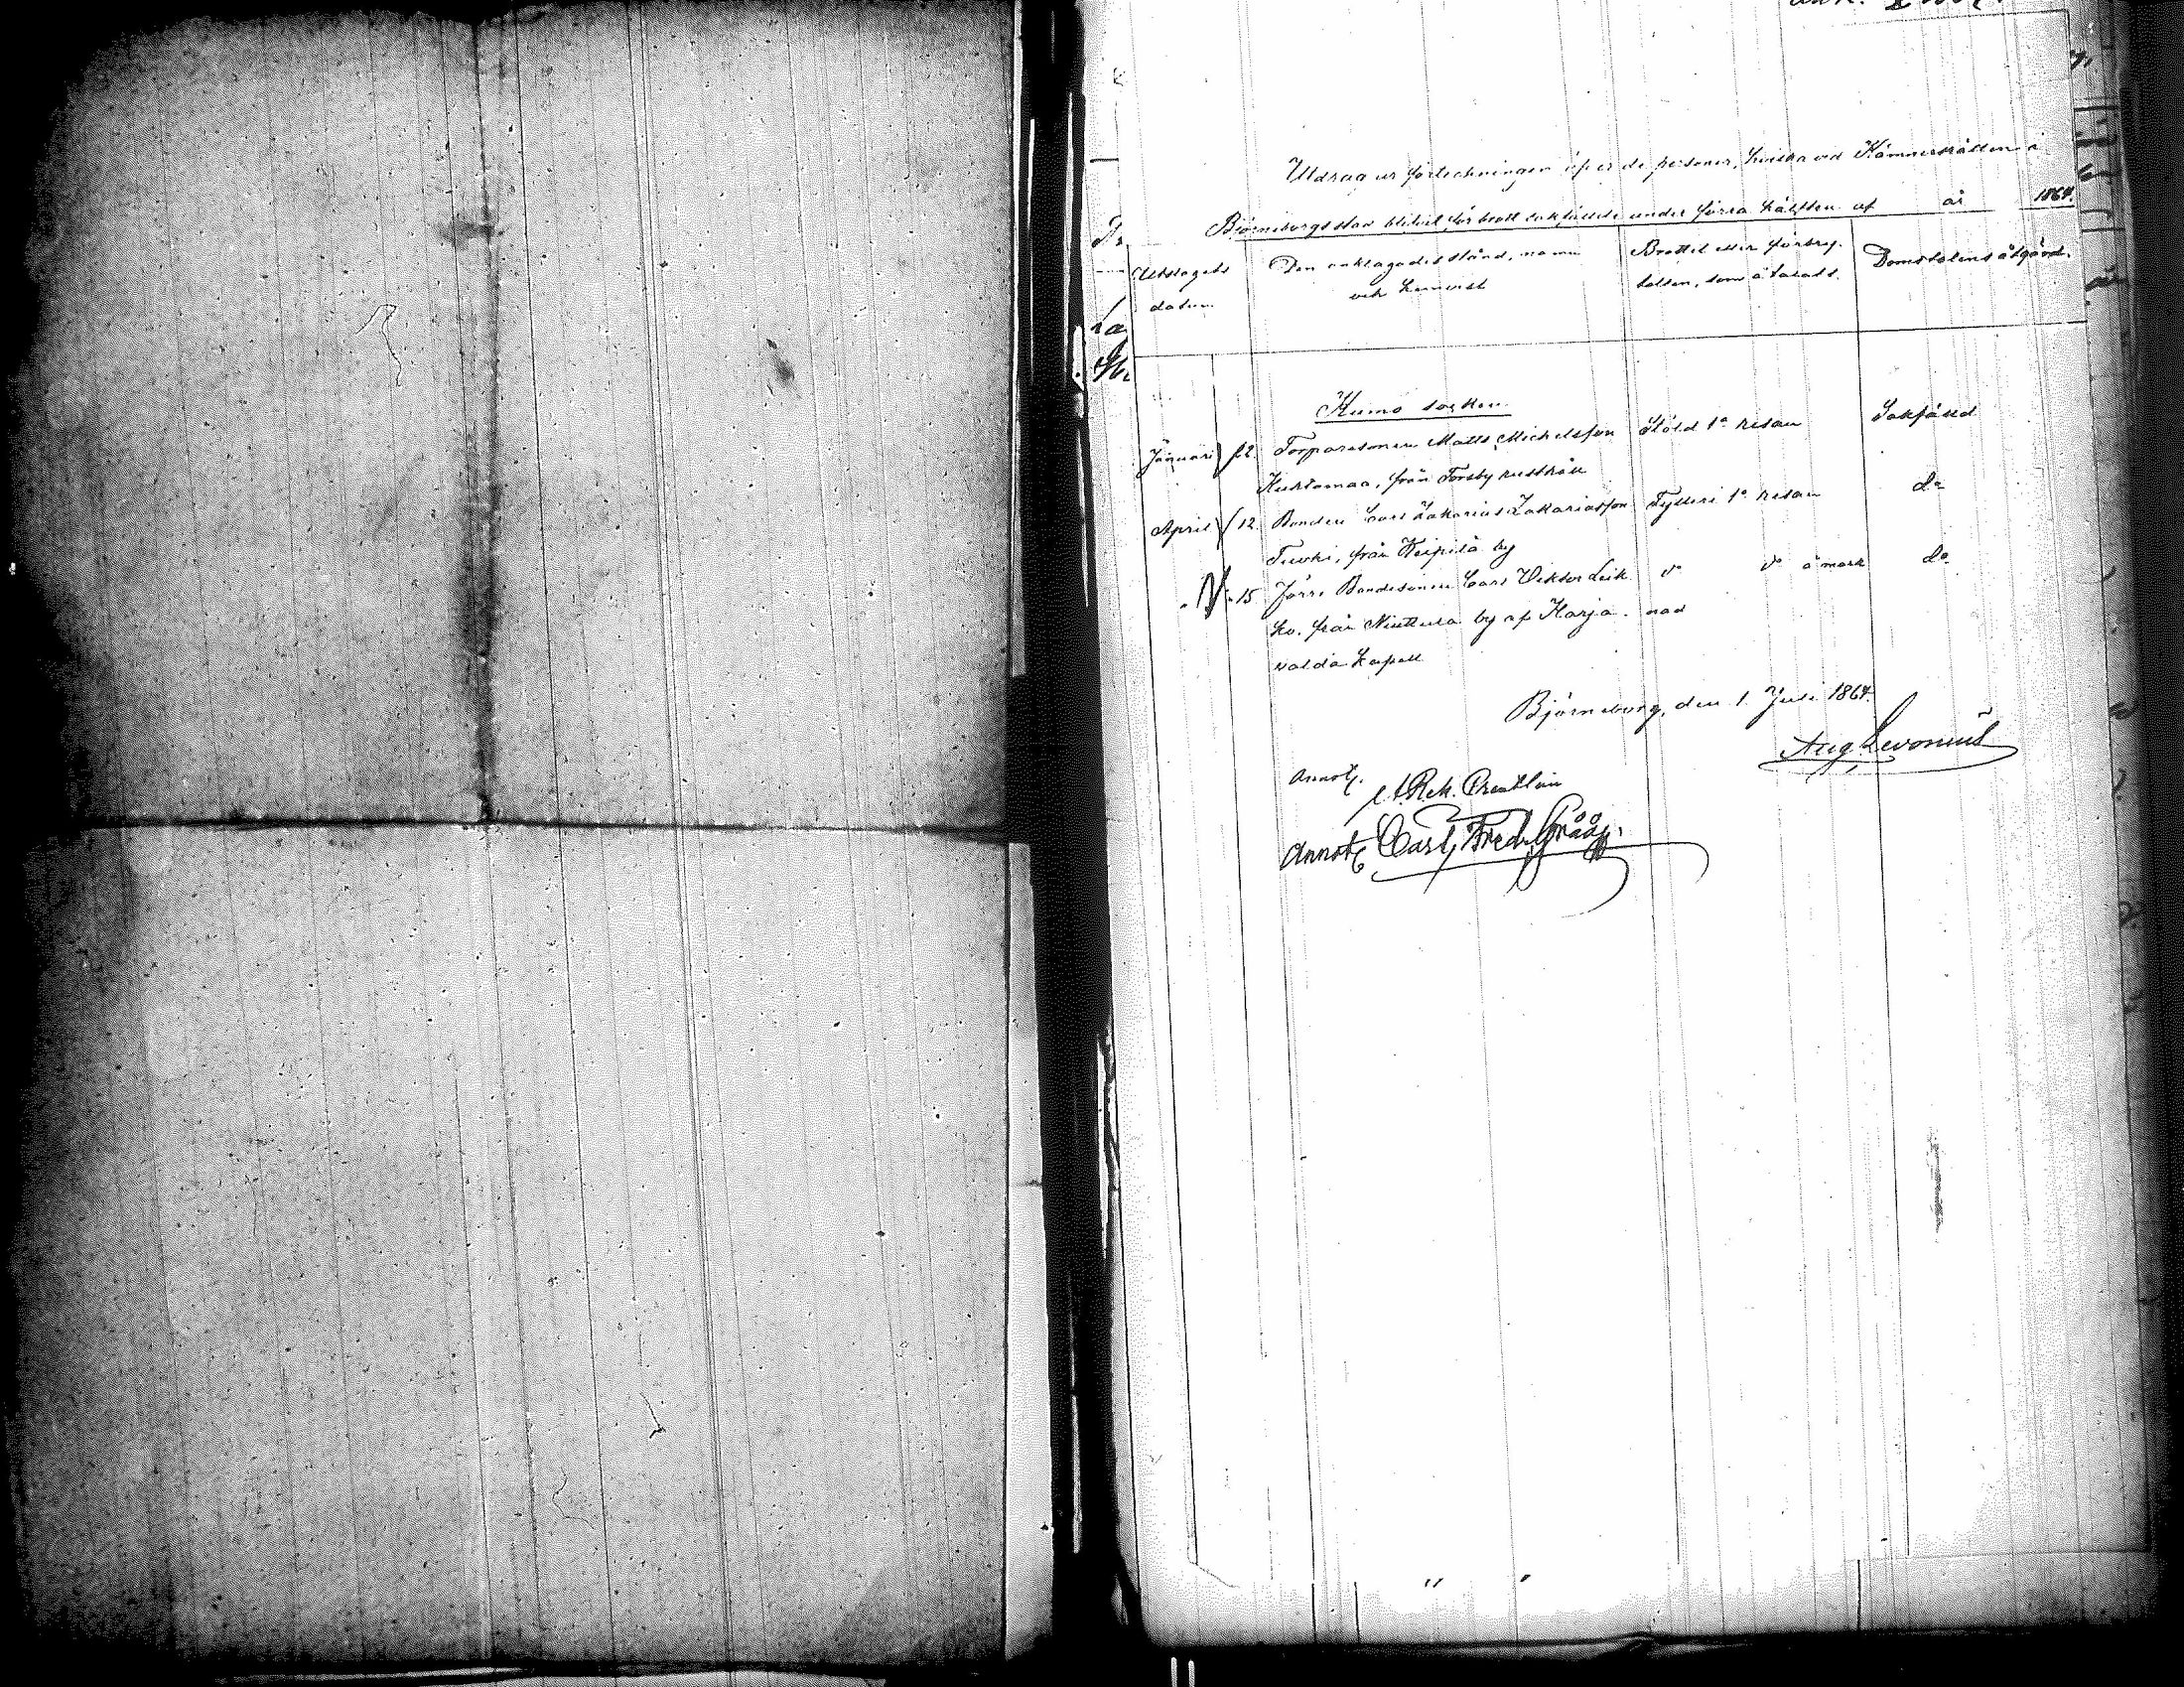 Utdrag ur förteckningen öfver de personer, hvilka vid Kämnersrätten i
Björneborgs stad blifvit för brott sakfällde under förra hälften af år 1864.
Utslagets datum
Den anklagades stånd, namn och hemvist
Brottet eller förbrytelsen, som åtalats.
Domstolens åtgärd.
Kumo socken
Januari 12. Torparesonen Matts Michelsson Stöld 1a resan Sakfälld
Kuhtamaa, från Forsby rusthåll
April 12. Bonden Carl Zakarias Zakariasson Fylleri 1a resan do
Tuoki, från Keipilä by
15 Förre Bondesonen Carl Viktor Leik do do å mark do
ko, från Niuttula by af Harja nad
valda Kapell
Björneborg, den 1 Juli 1864.
Aug Levonius
Annot.
Annot. Carl Fredr. Grååg.